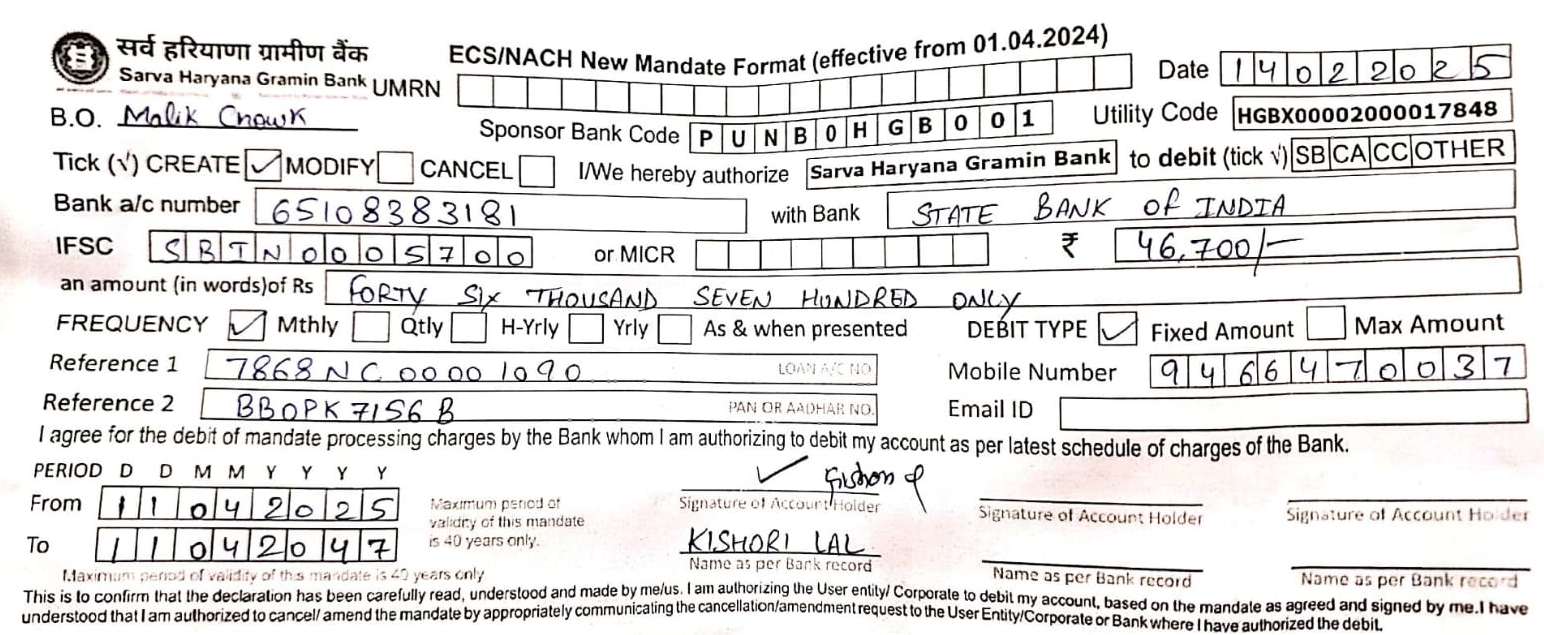 सर्व हरियाणा ग्रामीण बैंक
Sarva Haryana Gramin Bank
ECS/NACH New Mandate Format (effective from 01.04.2024)
UMRN
Date 14022025
B.O. Malik Chowk
Sponsor Bank Code PUNB0HGB001
Utility Code HGBX00002000017848
Tick (√) CREATE ✓ MODIFY CANCEL I/We hereby authorize Sarva Haryana Gramin Bank to debit (tick √) SB CA CC OTHER
Bank a/c number 65108383181 with Bank STATE BANK OF INDIA
IFSC SBIN0005700 or MICR ₹ 46,700/-
an amount (in words)of Rs FORTY SIX THOUSAND SEVEN HUNDRED ONLY
FREQUENCY ✓ Mthly Qtly H-Yrly Yrly As & when presented DEBIT TYPE ✓ Fixed Amount Max Amount
Reference 1 7868NC00001090 LOAN A/C NO Mobile Number 9466470037
Reference 2 BBOPK7156B PAN OR AADHAR NO. Email ID
I agree for the debit of mandate processing charges by the Bank whom I am authorizing to debit my account as per latest schedule of charges of the Bank.
PERIOD D D M M Y Y Y Y
From 11042025
To 11042047
Maximum period of
validity of this mandate
is 40 years only.
Maximum period of validity of this mandate is 40 years only
✓
Signature of Account Holder Signature of Account Holder Signature of Account Holder
KISHORI LAL
Name as per Bank record Name as per Bank record Name as per Bank record
This is to confirm that the declaration has been carefully read, understood and made by me/us. I am authorizing the User entity/ Corporate to debit my account, based on the mandate as agreed and signed by me.I have
understood that I am authorized to cancel/ amend the mandate by appropriately communicating the cancellation/amendment request to the User Entity/Corporate or Bank where I have authorized the debit.